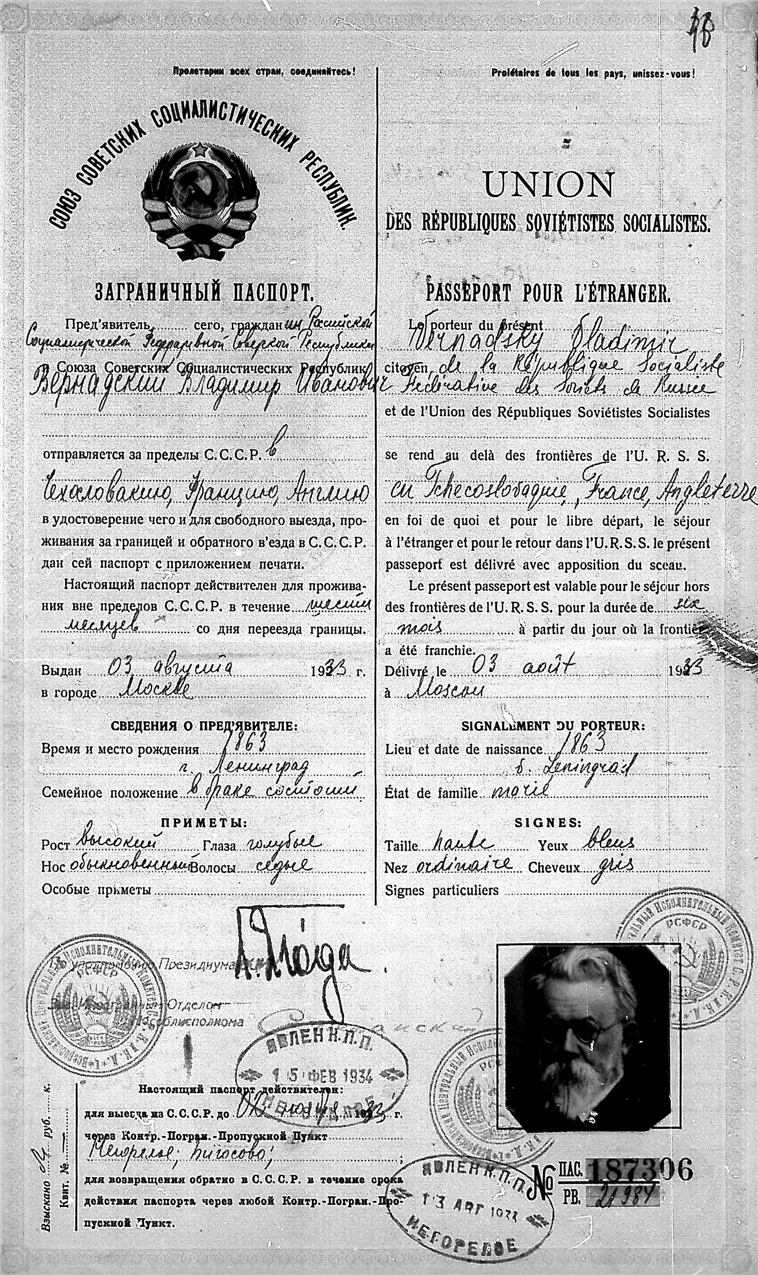 Пролетарии всех стран, соединяйтесь!
СОЮЗ СОВЕТСКИХ СОЦИАЛИСТИЧЕСКИХ РЕСПУБЛИК.
ЗАГРАНИЧНЫЙ ПАСПОРТ.
Пред'явитель сего, гражданин Российской
Социалистической Федеративной Советской Республики
и Союза Советских Социалистических Республик
Вернадский Владимир Иванович
отправляется за пределы С.С.С.Р. в
Чехословакию, Францию, Англию
в удостоверение чего и для свободного выезда, про-
живания за границей и обратного в'езда в С.С.С.Р.
дан сей паспорт с приложением печати.
Настоящий паспорт действителен для прожива-
ния вне пределов С.С.С.Р. в течение шести
месяцев со дня переезда границы.
Выдан 03 августа 1933 г.
в городе Москве
СВЕДЕНИЯ О ПРЕД'ЯВИТЕЛЕ:
Время и место рождения 1863
г. Ленинград
Семейное положение в браке состоит
ПРИМЕТЫ:
Рост высокий Глаза голубые
Нос обыкновенный Волосы седые
Особые приметы
Prolétaires de tous les pays, unissez-vous!
UNION
DES RÉPUBLIQUES SOVIÉTISTES SOCIALISTES.
PASSEPORT POUR L'ÉTRANGER.
Le porteur du présent Vernadsky Vladimir
citoyen de la République Socialiste
Fédérative des Soviets de Russie
et de l'Union des Républiques Soviétistes Socialistes
se rend au delà des frontières de l'U. R. S. S.
en Tchécoslovaquie, France, Angleterre
en foi de quoi et pour le libre départ, le séjour
à l'étranger et pour le retour dans l'U.R.S.S. le présent
passeport est délivré avec apposition du sceau.
Le présent passeport est valable pour le séjour hors
des frontières de l'U.R.S.S. pour la durée de six
mois à partir du jour où la frontière
a été franchie.
Délivré le 03 août 1933
à Moscou
SIGNALEMENT DU PORTEUR:
Lieu et date de naissance 1863
Leningrad
État de famille marié
SIGNES:
Taille haute Yeux bleus
Nez ordinaire Cheveux gris
Signes particuliers
Президиума
Отделом
РСФСР
РСФСР
ЯВЛЕН К.П.П.
15 ФЕВ 1934
НЕГОРЕЛОЕ
Настоящий паспорт действителен:
для выезда из С.С.С.Р. до
через Контр.-Погран.-Пропускной Пункт
Негорелое; Бигосово;
для возвращения обратно в С.С.С.Р. в течение срока
действия паспорта через любой Контр.-Погран.-Про-
пускной Пункт.
Взыскано руб. к.
Квит. №
ЯВЛЕН К.П.П.
13 АВГ
НЕГОРЕЛОЕ
№ ПАС. 187306
РВ. 21984